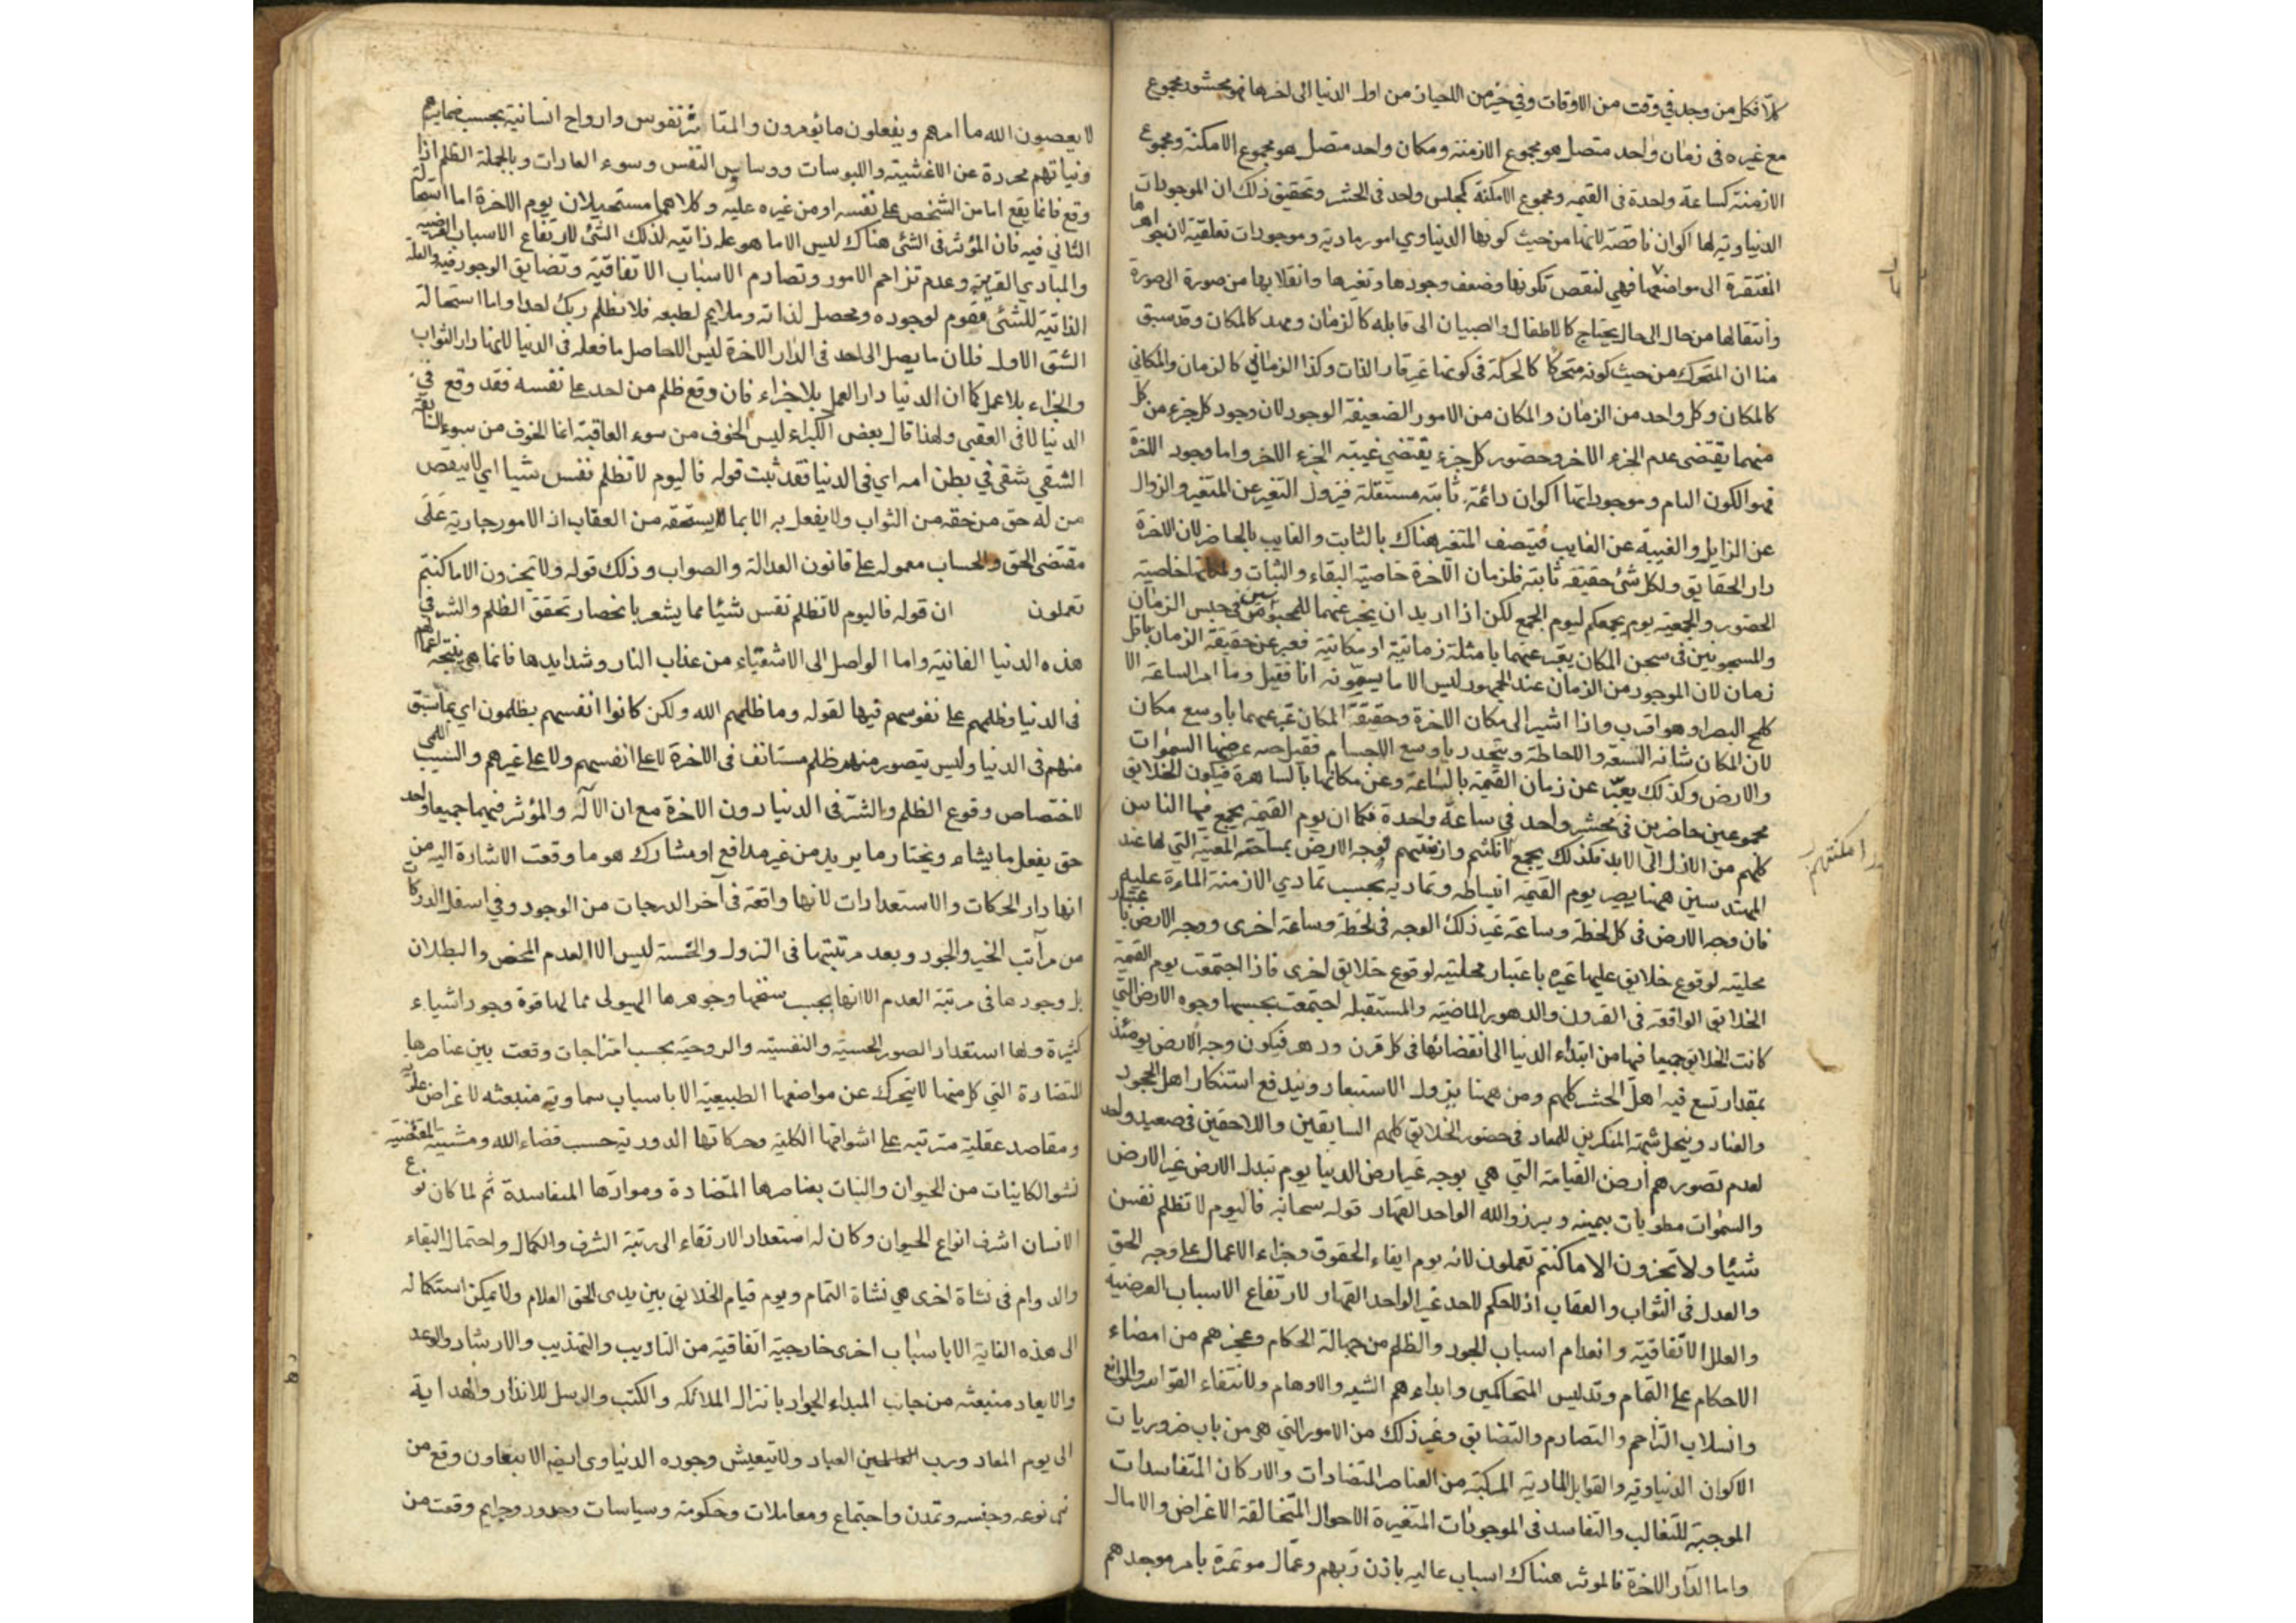 كلا فكل من وجد في وقت من الاوقات وفي حيز من الاحياز من اول الدنيا الى اخرها فهو محشور مجموع
مع غيره في زمان واحد متصل هو مجموع الازمنة ومكان واحد متصل هو مجموع الامكنة ومجموع
الازمنة كساعة واحدة في القيمة ومجموع الامكنة كمجلس واحد في الحشر وتحقيق ذلك ان الموجودات
الدنياوية لها اكوان ناقصة لانها من حيث كونها الدنياوي امور مادية وموجودات تعلقية لان جواهرها
المفتقرة الى مواضعها فهي لنقص تكونها وضعف وجودها وتغيرها وانقلابها من صورة الى صورة
وانتقالها من حال الى حال يحتاج كالاطفال والصبيان الى قابلة كالزمان ومهد كالمكان وقد سبق
منا ان المتحرك من حيث كونه متحركا كالحركة في كونها غير قار الذات وكذا الزماني كالزمان والمكاني
كالمكان وكل واحد من الزمان والمكان من الامور الضعيفة الوجود لان وجود كل جزء من كل
منهما يقتضي عدم الجزء الاخر وحضور كل جزء يقتضي غيبة الجزء الاخر واما وجود الاخرة
فهو الكون التام وموجوداتها اكوان دائمة ثابتة مستقلة فيزول التغير عن المتغير والزوال
عن الزايل والغيبة عن الغايب فيتصف المتغير هناك بالثابت والغايب بالحاضر لان الاخرة
دار الحقايق ولكل شئ حقيقة ثابتة فلزمان الآخرة خاصية البقاء والثبات ولمكانها خاصية
الحضور والجمعية يوم يجمعكم ليوم الجمع لكن اذا اريد ان يخبر عنهما للمحبوسين في حبس الزمان
والمسجونين في سجن المكان يعبر عنهما بامثلة زمانية او مكانية فعبر عن حقيقة الزمان باقل
زمان لان الموجود من الزمان عند الجمهور ليس الا ما يسمونه انا فقيل وما امر الساعة الا
كلمح البصر او هو اقرب واذا اشير الى مكان الاخرة وحقيقة المكان عبر عنهما باوسع مكان
لان المكان شانه السعة والاحاطة ويتحدد باوسع الاجسام فقيل جنة عرضها السموات
والارض وكذلك يعبر عن زمان القيمة بالساعة وعن مكانها بالساهرة فيكون الخلايق
مجموعين حاضرين في محشر واحد في ساعة واحدة فكما ان يوم القيمة يجمع فيها الناس
كلهم من الازل الى الابد فكذلك يجمع امكنتهم وازمنتهم فوجه الارض بمساحته المعينة التي لها عند
امكنتهم
المهندسين ههنا يصير يوم القيمة انبساطه وتماديه بحسب تمادي الازمنة المارة عليه
فان وجه الارض في كل لحظة وساعة غير ذلك الوجه في لحظة وساعة اخرى ووجه الارض باعتبار
محليته لوقوع خلايق عليها غيره باعتبار محليته لوقوع خلايق اخرى فاذا اجتمعت يوم القيمة
الخلايق الواقعة في القرون والدهور الماضية والمستقبلة اجتمعت بحسبها وجوه الارض التي
كانت الخلايق جميعا فيها من ابتداء الدنيا الى انقضائها في كل قرن ودهر فيكون وجه الارض يومئذ
بمقدار تسع فيه اهل الحشر كلهم ومن ههنا يزول الاستبعاد ويندفع استنكار اهل الجحود
والعناد وينحل شبهة المنكرين للمعاد في حضور الخلايق كلهم السابقين واللاحقين في صعيد واحد
لعدم تصورهم ارض القيامة التي هي بوجه غير ارض الدنيا يوم تبدل الارض غير الارض
والسموات مطويات بيمينه وبرزوا لله الواحد القهار قوله سبحانه فاليوم لا تظلم نفس
شيئا ولا تجزون الا ما كنتم تعملون لانه يوم ايفاء الحقوق وجزاء الاعمال على وجه الحق
والعدل في الثواب والعقاب اذ لا حكم لاحد غير الواحد القهار لارتفاع الاسباب العرضية
والعلل الاتفاقية وانعدام اسباب الجور والظلم من جهالة الحكام وعجزهم من امضاء
الاحكام على التمام وتدليس المتحاكمين وابداءهم الشبه والاوهام ولانتفاء القواسر والموانع
وانسلاب التزاحم والتصادم والتضايق وغير ذلك من الامور التي هي من باب ضروريات
الاكوان الدنياوية والقوابل المادية المركبة من العناصر المتضادات والاركان المتفاسدات
الموجبة للتغالب والتفاسد في الموجودات المتغيرة الاحوال المتخالفة الاغراض والامال
واما الدار الاخرة فالموثر هناك اسباب عالية باذن ربهم وعمال موتمرة بامر موجدهم
لا يعصون الله ما امرهم ويفعلون ما يؤمرون والمتاثر نفوس وارواح انسانية بحسب ضمايرهم
ونياتهم مجردة عن الاغشية واللبوسات ووساوس النفس وسوء العادات وبالجملة الظلم اذا
وقع فانما يقع اما من الشخص على نفسه او من غيره عليه وكلاهما مستحيلان يوم الاخرة اما استحالة
الثاني فيه فان المؤثر في الشئ هناك ليس الا ما هو علة ذاتية لذلك الشئ لارتفاع الاسباب العرضية
والمبادي القريبة وعدم تزاحم الامور وتصادم الاسباب الاتفاقية وتضايق الوجود فيه والعلة
الذاتية للشئ مقوم لوجوده ومحصل لذاته وملايم لطبعه فلا يظلم ربك احدا واما استحالة
الشق الاول فلان ما يصل الى احد في الدار الاخرة ليس الا حاصل ما فعله في الدنيا لانها دار الثواب
والجزاء بلا عمل كما ان الدنيا دار العمل بلا جزاء فان وقع ظلم من احد على نفسه فقد وقع في
الدنيا لا في العقبى ولهذا قال بعض الكبراء ليس الخوف من سوء العاقبة انما الخوف من سوء السابقة
الشقي شقي في بطن امه اي في الدنيا فقد ثبت قوله فاليوم لا تظلم نفس شيا اي لا ينقص
من له حق من حقه من الثواب ولا يفعل به الا بما يستحقه من العقاب اذ الامور جارية على
مقتضى الحق والحساب معمولة على قانون العدالة والصواب وذلك قوله ولا تجزون الا ما كنتم
تعملون ان قوله فاليوم لا تظلم نفس شيئا مما يشعر بانحصار تحقق الظلم والشر في
هذه الدنيا الفانية واما الواصل الى الاشقياء من عذاب النار وشدايدها فانما هي نتيجة اعمالهم
في الدنيا وظلمهم على نفوسهم فيها لقوله وما ظلمهم الله ولكن كانوا انفسهم يظلمون اي بما سبق
منهم في الدنيا وليس يتصور منهم ظلم مستانف في الاخرة لا على انفسهم ولا على غيرهم والسبب اللمي
لاختصاص وقوع الظلم والشر في الدنيا دون الاخرة مع ان الاله والمؤثر فيهما جميعا واحد
حق يفعل ما يشاء ويختار ما يريد من غير مدافع او مشارك هو ما وقعت الاشارة اليه من
انها دار الحركات والاستعدادات لانها واقعة في آخر الدرجات من الوجود وفي اسفل الدركات
من مراتب الخير والجود وبعد مرتبتها في النزول والخسة ليس الا العدم المحض والبطلان
بل وجودها في مرتبة العدم الا انها بحسب سنخها وجوهرها الهيولى مما لها قوة وجود اشياء
كثيرة ولها استعداد الصور الحسية والنفسية والروحية بحسب امتزاجات وقعت بين عناصرها
المتضادة التي كل منها لا يتحرك عن مواضعها الطبيعية الا باسباب سماوية منبعثة لاغراض علوية
ومقاصد عقلية مترتبة على اشواقها الكلية وحركاتها الدورية حسب قضاء الله ومشيته المقتضية
نشو الكاينات من الحيوان والنبات بعناصرها المتضادة وموادها المتفاسدة ثم لما كان نوع
الانسان اشرف انواع الحيوان وكان له استعداد الارتقاء الى رتبة الشرف والكمال واحتمال البقاء
والدوام في نشاة اخرى هي نشاة التمام ويوم قيام الخلايق بين يدي الحق العلام ولا يمكن استكماله
الى هذه الغاية الا باسباب اخرى خارجية اتفاقية من التاديب والتهذيب والارشاد والوعد
والايعاد منبعثة من جانب المبداء الجواد بانزال الملائكة والكتب والرسل للانذار والهداية
الى يوم المعاد ورب العباد ولا يتعيش وجوده الدنياوي ايضا الا بتعاون وقع من
بني نوعه وجنسه وتمدن واجتماع ومعاملات وحكومة وسياسات وحدود وجرايم وقعت من